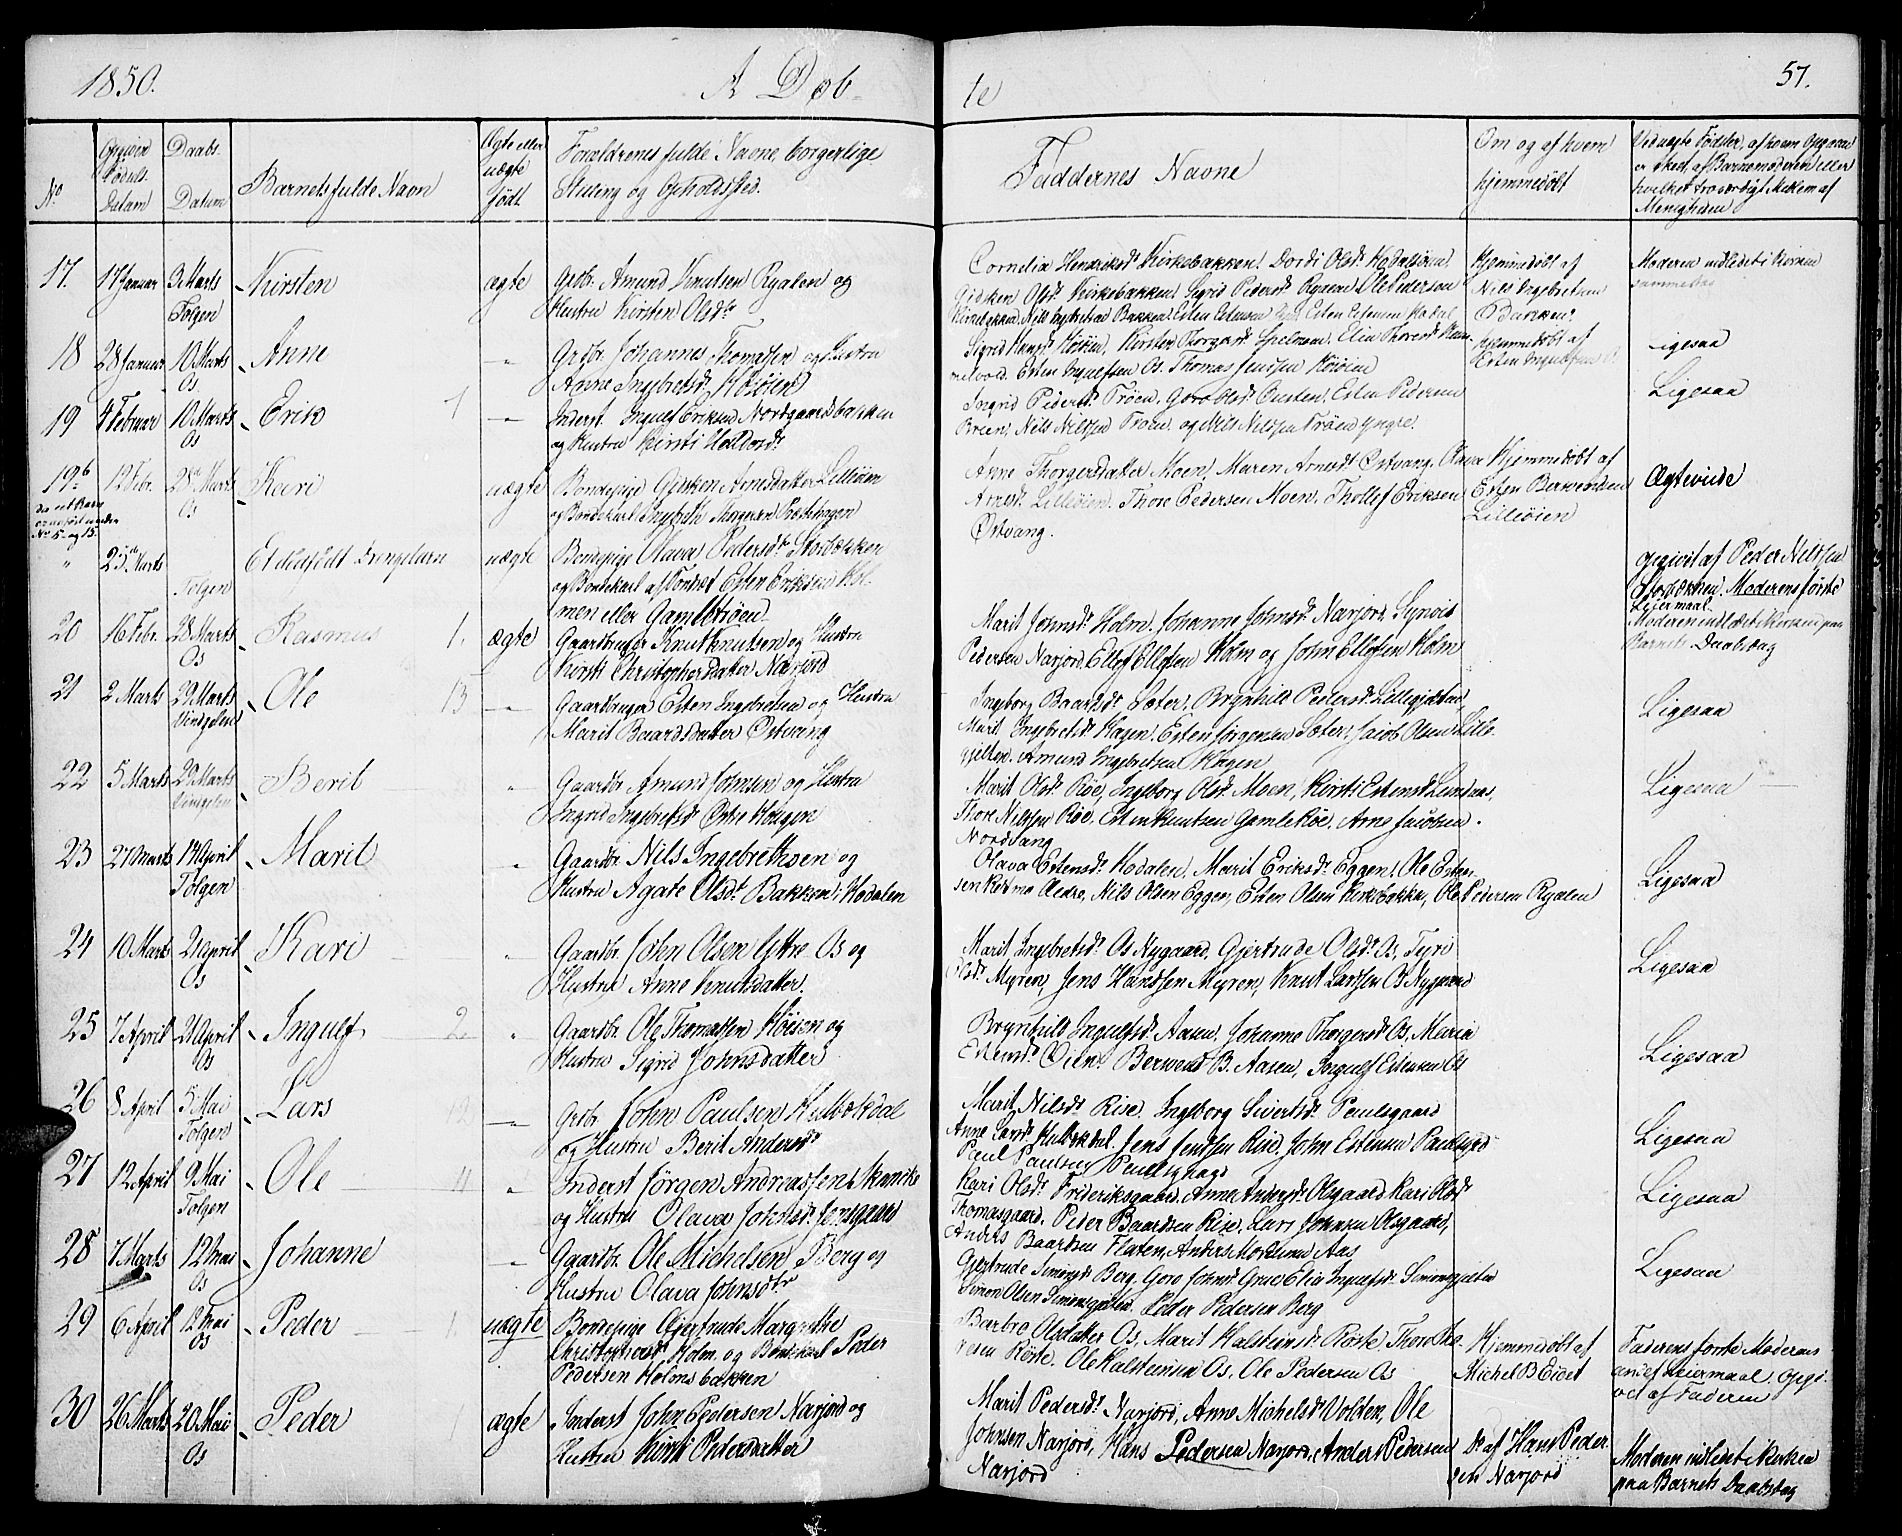 1850.
A Døb-
te
57.
No
Opgiven Fødsels Datum
Daabs Datum
Barnets fulde Navn
Ægte eller uægte født
Forældrenes fulde Navne, borgerlige
Stilling og Opholdsted.
Faddernes Navne
Om og af hvem
hjemmedøbt
Ved uægte Fødsler, af hvem Opgaven
er skeet, af Barnemoderen eller
hvilket troværdigt Medlem af
Menigheden
17. 17 Januar 3 Marts Tolgen Kirsten ægte
Grdbr. Amund Knutsen Ryalen og
Hustru Kirsten Olsdr
Cornelia Henriksdr Kirkebakken. Dordi Olsdr
Gidsken Olsdr Kirkebakken. Sigrid Pedersdr Ole Pedersen
Kirkebakken. Nils Ingebretsen Bakken. Esten Estensen
Hjemmedøbt af
Nils Ingebretsen
Bakken.
Moderen indledet i Kirken
samme Dag
18 28 Januar 10 Marts Os Anne "
Grdbr. Johannes Thomassen og Hustru
Anne Ingebretsdr Høiøien
Sigrid Høiøien. Kirsten Thorgersdr Spelmoen. Elin Thoresdr
Esten Ingulfsen Os. Thomas Jensen Høiøien
hjemmedøbt af
Esten Ingulfsen Os
Ligesaa
19 4 Februar 10 Marts Os Erik 1 "
Inderst Ingulf Eriksen Nordgaardsbakken
og Hustru Kirsti Halvordr
Ingrid Pedersdr Trøen. Goro Olsdr Esten Pedersen
Nils Nilssen Trøen og Nils Nilssen Trøen yngre.
Ligesaa
19b 12 Febr. 28 Marts Os Kari uægte
da eet Barn
er opført under
No 5 og 15.
Bondepige Gidsken Arnesdatter Lilleøien
og Bondekarl Ingebrit
Anne Thorgersdatter Moen, Maren Arnesdr Østvang. Olava
Arnesdr Lilleøien. Thore Pedersen Moen. Thollef Eriksen
Østvang.
Hjemmedøbt af
Esten Berwendsen
Lilleøien
Ægteviede
" 25 Marts Tolgen Et dødfødt Drengebarn uægte
Bondepige Olava Pedersdr Storbækken
og Bondekarl af Tønset Esten Eriksen Hol-
men eller Gammeltrøen
opgivet af Peder Nilssen
Storbækken. Moderens første
Leiermaal.
20 16 Febr. 28 Marts Os Rasmus 1. ægte
Gaardbruger Knut Knutsen og Hustru
Kirsti Christophersdatter Narjord
Marit Johnsdr Holm. Johanne Johnsdr Narjord. Synvis
Pedersen Narjord. Ellef Ellefsen Holm og John Ellefsen Holm
Moderen indledet i Kirken paa
Barnets Daabsdag
21 2 Marts 29 Marts Vingelen Ole 13 "
Gaardbruger Esten Ingebretsen og Hustru
Marit Baardsdatter Østvang
Ingeborg Baardsdr Sæter. Brynhild Pedersdr Lillegjelten
Marit Ingebretsdr Hagen. Esten Jørgensen Sæter. Jacob Olsen Lille-
gjelten. Amund Ingebretsen Hagen
Ligesaa
22 5 Marts 29 Marts Vingelen Berit "
Gaardbr. Amund Johnsen og Hustru
Ingrid Ingebretsdr Østre Hougen
Marit Olsdr Røe, Ingeborg Olsdr Moen, Kirsti Estensdr
Thore Nilssen Røe. Esten Knutsen Gamle Røe. Arne Jacobsen
Nordvang
Ligesaa
23 27 Marts 14 April Tolgen Marit "
Gaardbr Nils Ingebrethsen og
Hustru Agate Olsdr Bakken, Hodalen
Olava Estensdr Hodalen. Marit Eriksdr Eggen. Ole Esten-
sen Nils Olsen Eggen, Esten Olsen Kirkebakken, Ole Pedersen Ryalen
Ligesaa
24 10 Marts 21 April Os Kari "
Gaardbr. John Olsen Yttre Os og
Hustru Anne Knutsdatter.
Marit Ingebretsdr Os Nygaard, Gjertrude Olsdr Os, Tyri
Olsdr Myren, Jens Hanssen Myren, Knut Larssen Os Nygaard
Ligesaa
25 7 April 21 April Os Ingulf 2. "
Gaardbr. Ole Thomassen Høiøen og
Hustru Sigrid Johnsdatter
Brynhild Ingulfsdr Aasen. Johanne Thorgersdr Os, Maria
Estensdr Øien. Berwend B. Aasen, Ingulf Estensen Os
Ligesaa
26 8 April 5 Mai Tolgen Lars 12 "
Grdbr John Paulsen Kulbækdal
og Hustru Berit Andersdr
Marit Nilsdr Rise. Ingeborg Sivertsdr Paulsgaard
Anne Larsdr Kulbækdal. Jens Jenssen Rise. John Estensen Paulsgrd
Paul Paulsen Paulsgaard
Ligesaa
27 12 April 9 Mai Tolgen Ole 11 "
Inderst Jørgen Andreassen Skancke
og Hustru Olava Johnsdr Jensgaard
Kari Olsdr Friderichsgaard. Anne Andersdr Olsgaard Kari Olsdr
Thomasgaard. Peder Baardsen Rise. Lars Johnsen Olsgaard,
Anders Baardsen Flaten, Anders Mortensen Aas
Ligesaa
28 7 Marts 12 Mai Os Johanne "
Gaardbr. Ole Michelsen Berg og
Hustru Olava Johnsdr
Gjertrude Simonsdr Berg. Goro Johnsdr Grue Elia Ingulfsdr Simensgjelten
Simon Olsen Simensgjelten. Peder Pedersen Berg
Ligesaa
29 6 April 12 Mai Os Peder 1. uægte
Bondepige Gjertrude Margrethe
Christophersdr Holm og Bondekarl Peder
Pedersen Holmsbakken
Barbro Olsdatter Os, Marit Halsteinsdr Røste. Thore Tho-
resen Røste. Ole Halsteinsen Os. Ole Pedersen Os
Hjemmedøbt af
Michel B Eidet
Faderens første Moderens
andet Leiermaal. Opgi-
vet af Faderen
30 26 Marts 20 Mai Os Peder 1 ægte
Inderst John Pedersen Narjord og
Hustru Kirsti Pedersdatter
Marit Pedersdr Narjord, Anne Michelsdr Volden, Ole
Johnsen Narjord, Hans Pedersen Narjord. Anders Pedersen
Narjord
Do af Hans Peder-
sen Narjord
Moderen indledt i Kirken
paa Barnets Daabsdag